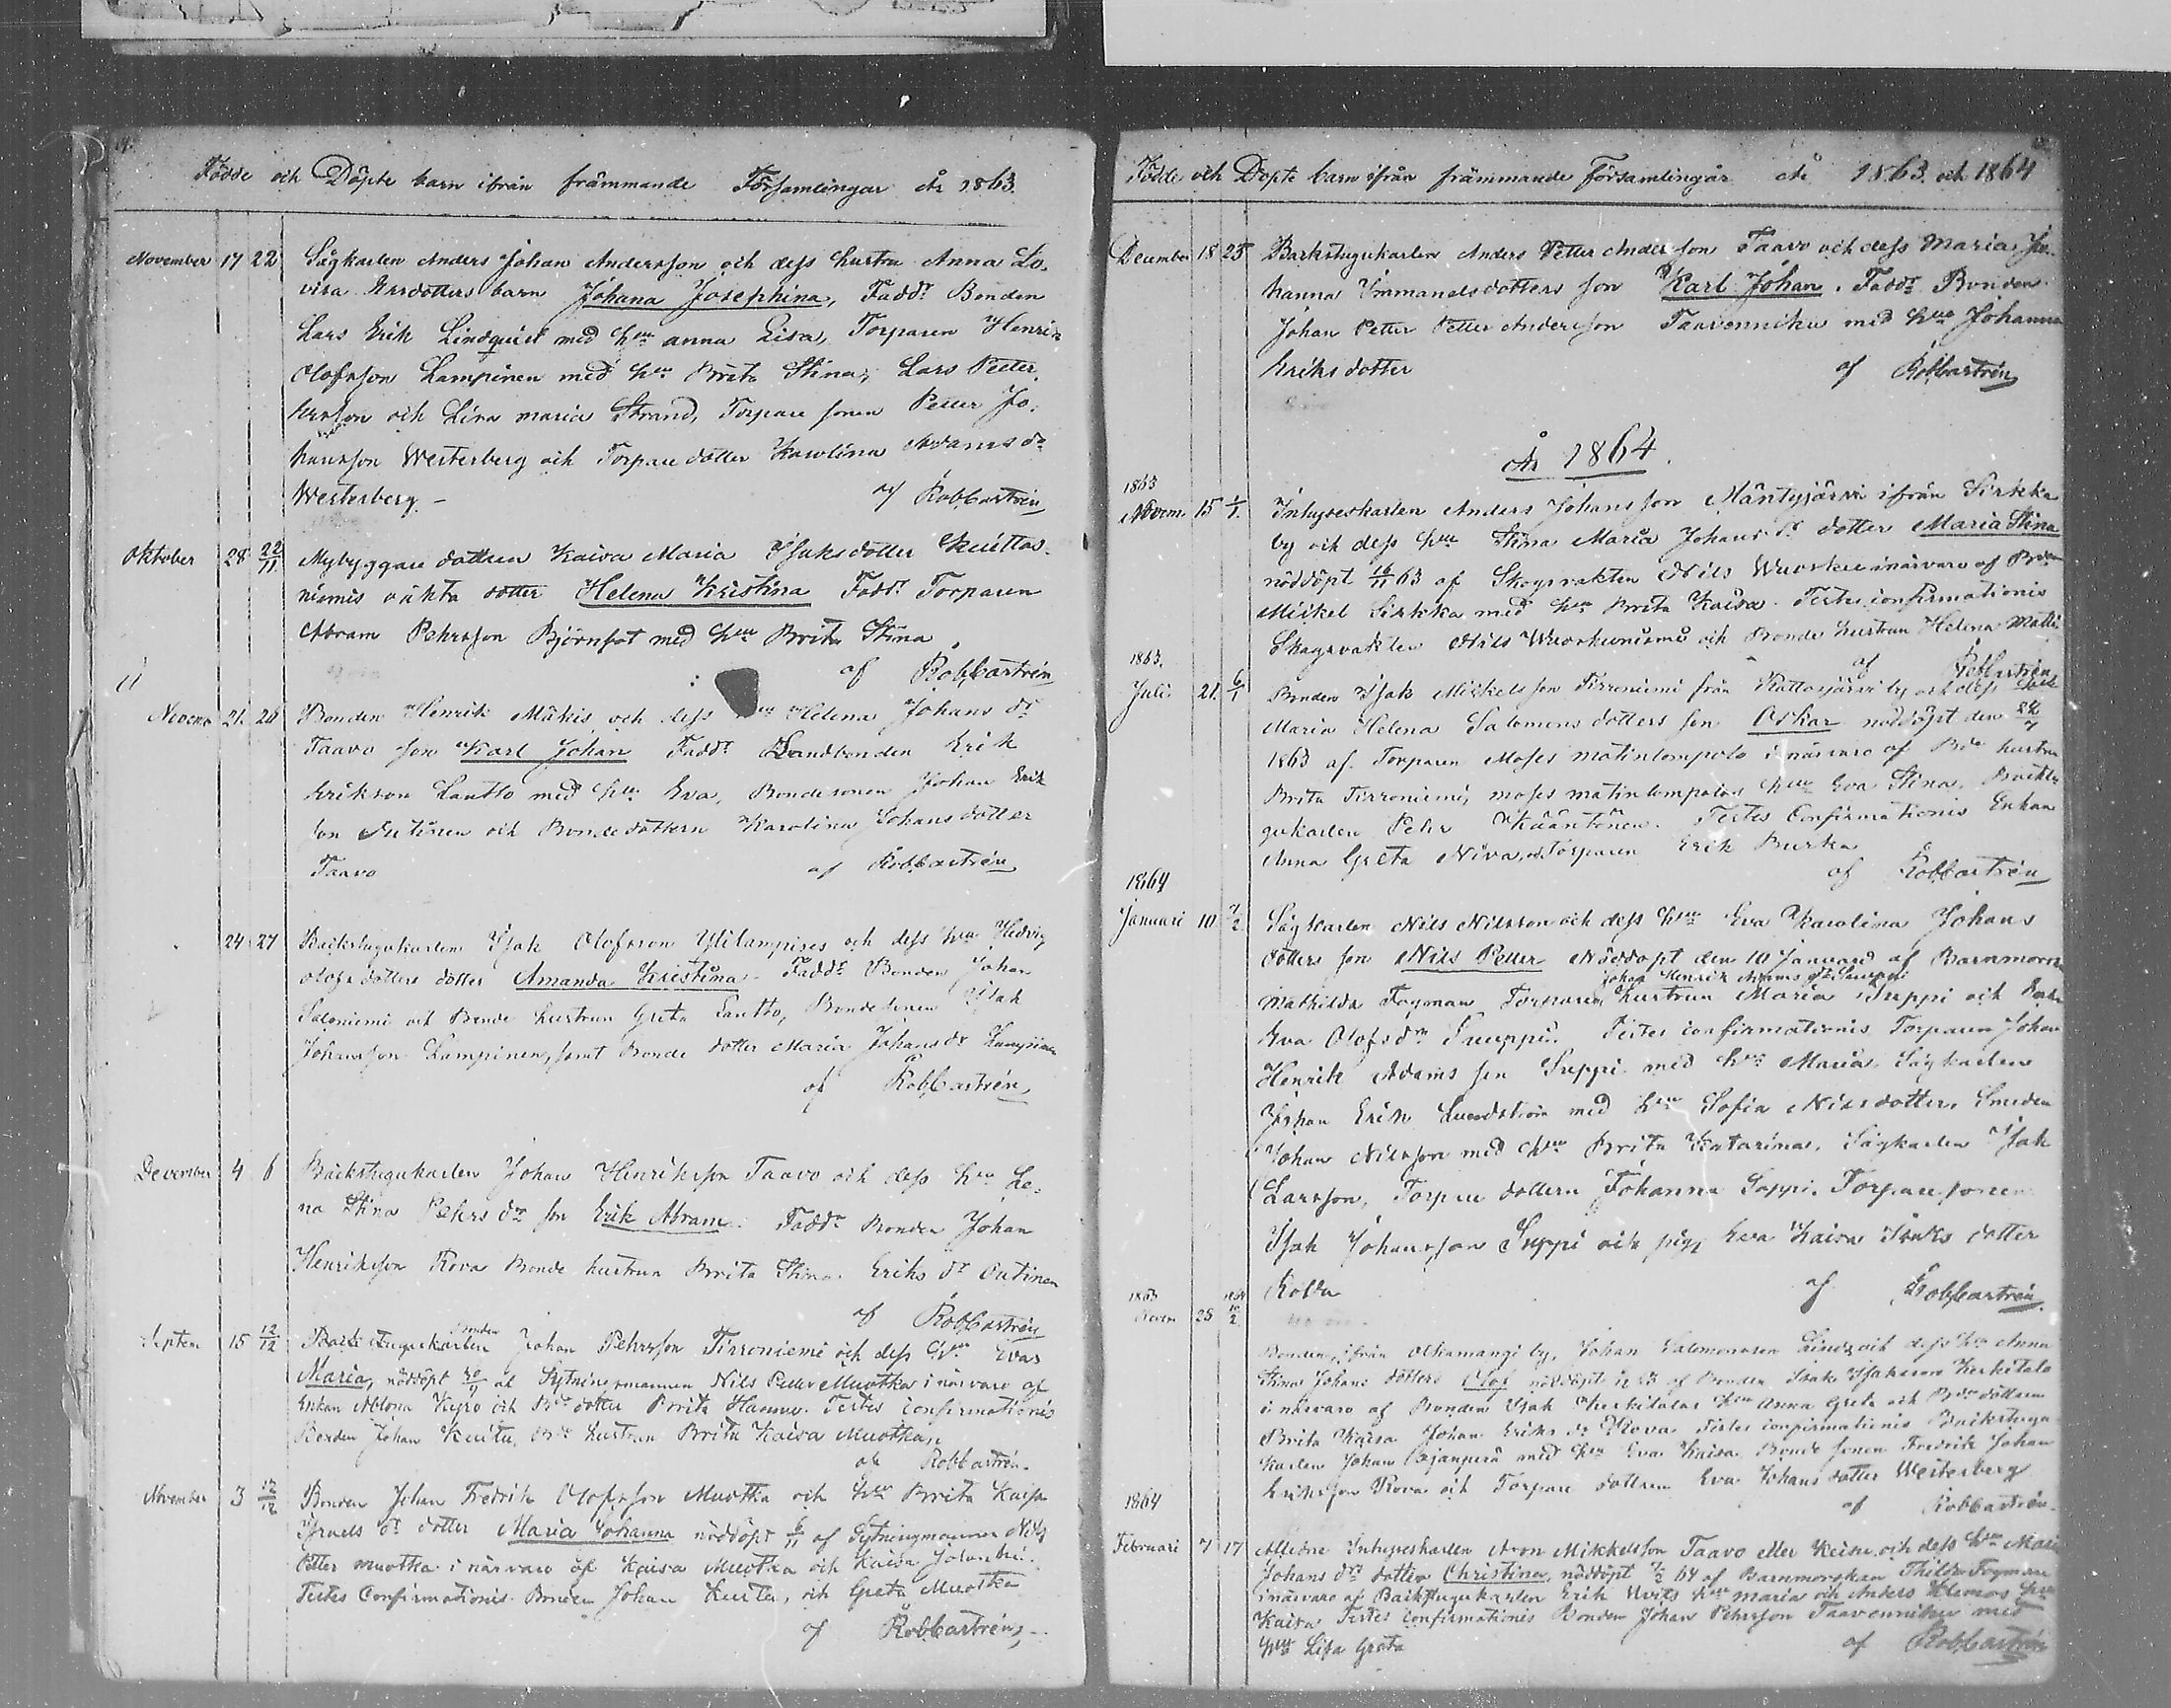 Födde och Döpte barn ifrån främmande Församlingar År 1863.
November 17 22 Sågkarlen Anders Johan Andersson och dess hustru Anna Lo-
visa Ersdotters barn Johana Josephina, Fadd: Bonden
Lars Erik Lindquist med h:u anna Lisa, Torparen Henrik
Olofsson Lampinen med h:u Brita Stina, Lars Petter
Ersson och Lisa maria Strand, Torpare sonen Petter Jo-
hansson Westerberg och Torpare dotter Karolina Adams d:r
Westerberg – af RobCastrén
Oktober 28 22/11 Nybyggare dottren Kaisa Maria Isaksdotter Kuittas-
niemis oäkta dotter Helena Kristina Fadd: Torparen
Abram Pehrsson Björnfot med h:u Brita Stina
af RobCastrén
Novemb 21. 26 Bonden Henrik Mäkis och dess h:u Helena Johans d:r
Taavo son Karl Johan Fadd: Landbonden Erik
Erikson Lantto med h:u Eva, Bondesonen Johan Erik
son Outinen och Bondedottern Karolina Johansdotter
Taavo af RobCastrén
24 27 Backstugukarlen Isak Olofsson Ylilampises och dess h:u Hedvig
Olofsdotters dotter Amanda Kristina. Fadd: Bonden Johan
Saloniemi och Bonde hustrun Greta Lantto, Bondesonen Isak
Johansson Lampinen, samt Bonde dotter Maria Johansd:r Lampinen
af RobCastrén
December 4 6 Backstugukarlen Johan Henriksson Taavo och dess h:u Le-
na Stina Pehrs d:r son Erik Abram. Fadd: Bonden Johan
Henriksson Rova Bonde hustrun Brita Stina Eriks d:r Outinen
af RobCastrén
Septem 15 12/12 Backstugukarlen Bonden Johan Pehrsson Tirroniemi och dess h:u Evas
Maria, nöddöpt af Nils Petter Muotka i närvaro af
Enkan Keyro och B:de dotter Brita Hannu. Testes confirmationis
Bonden Johan Kuitu, B:de hustrun Brita Kaisa Muotka,
af RobCastrén.
November 3 12/12 Bonden Johan Fredrik Olofsson Muotka och h:u Brita Kaisa
Israels d:r dotter Maria Johanna nöddöpt 6/11 af Nils
Petter muotka i närvaro af Kaisa Muotka och Kaisa
Testes Confirmationis Bonden Johan och Greta Muotka
af RobCastrén,
Födde och Döpte barn ifrån främmande Församlingar År 1863 och 1864
December 18 25 Backstugukarlen Anders Petter Andersson Taavo och dess Maria Jo-
hanna Emmanuelsdotters son Karl Johan. Fadd: Bonden
Johan Petter Petter Andersson Taavonniku med h:u Johanna
Eriksdotter af RobCastrén
År 1864.
1863
Novem. 15 1/1. Inhyseskarlen Anders Johansson Mäntyjärvi ifrån Sirkka
by och dess h:u Stina Maria Johans d:r dotter Maria Stina
nöddöpt 16/11 63 af Skogvakten Nils i närvaro af
Mickel Sirkka med h:u Brita Kaisa. Testes confirmationis
Skogvakten Nils och Bonde hustrun Helena
af RobCastrén
1863.
Juli 21. 6/1 Bonden Isak Mickelsson Tirroniemi från Rattosjärvi by och dess
Maria Helena Salomons dotters son Oskar nöddöpt den
1863 af Torparen Moses matinlompolo i närvaro af B:de hustrun
Brita Tirroniemi, moses matinlompolos h:u Eva Stina, Backstu-
gukarlen Pehr Kääntönen. Testes Confirmationis Enkan
Anna Greta Niva, och Torparen Erik Burka
af RobCastrén
1864
Januari 10 7/2 Sågkarlen Nils Nilsson och dess h:u Eva Karolina Johans
dotters son Nils Petter Nöddöpt den 10 Januari af Barnmorskan
Mathilda Fogman Torparen Johan Henrik hustrun Maria Suppi och
Eva Olofsd:r Suuppi. Testes confirmationis Torparen Johan
Henrik Adams son Suppi med h:u Maria. Sågkarlen
Johan Erik Lundström med h:u Sofia Nilsdotter. Smeden
Johan Nilsson med h:u Brita Katarina. Sågkarlen Isak
Larsson, Torpare dottern Johanna Suppi. Torpare sonen
Isak Johansson Suppi och pig. Eva Kaisa Isaks dotter
Kolva af RobCastrén
1863
Novem 25 10/2 Bonden, ifrån Alkamangi by, Johan Salomonsson och dess h:u Anna
Stina Johans dotters Olof nöddöpt af Bonden Isak Isaksson Kerkitalo
i närvaro af Bonden Isak Kerkitalos h:u Anna Greta och B:de dottren
Brita Kaisa Johan Eriks d:r Rova Testes confirmationis Backstugu
karlen Johan med h:u Eva Kaisa Bonde sonen Fredrik Johan
Eriksson Rova och Torpare dottren Eva Johans dotter Westerberg
af RobCastrén.
1864
Februari 7 17 Inhyseskarlen Aron Mikkelsson Taavo eller och dess h:u Maria
Johans d:r dotter Christina, nöddöpt 7/2 64 af Barnmorskan Thilda Fogman
i närvaro af Backstugukarlen Erik h:u maria och Anders Klemos h:u
Kaisa Testes Confirmationis Bonden Johan Pehrsson Taavonniku med
h:u Lisa Greta af RobCastrén